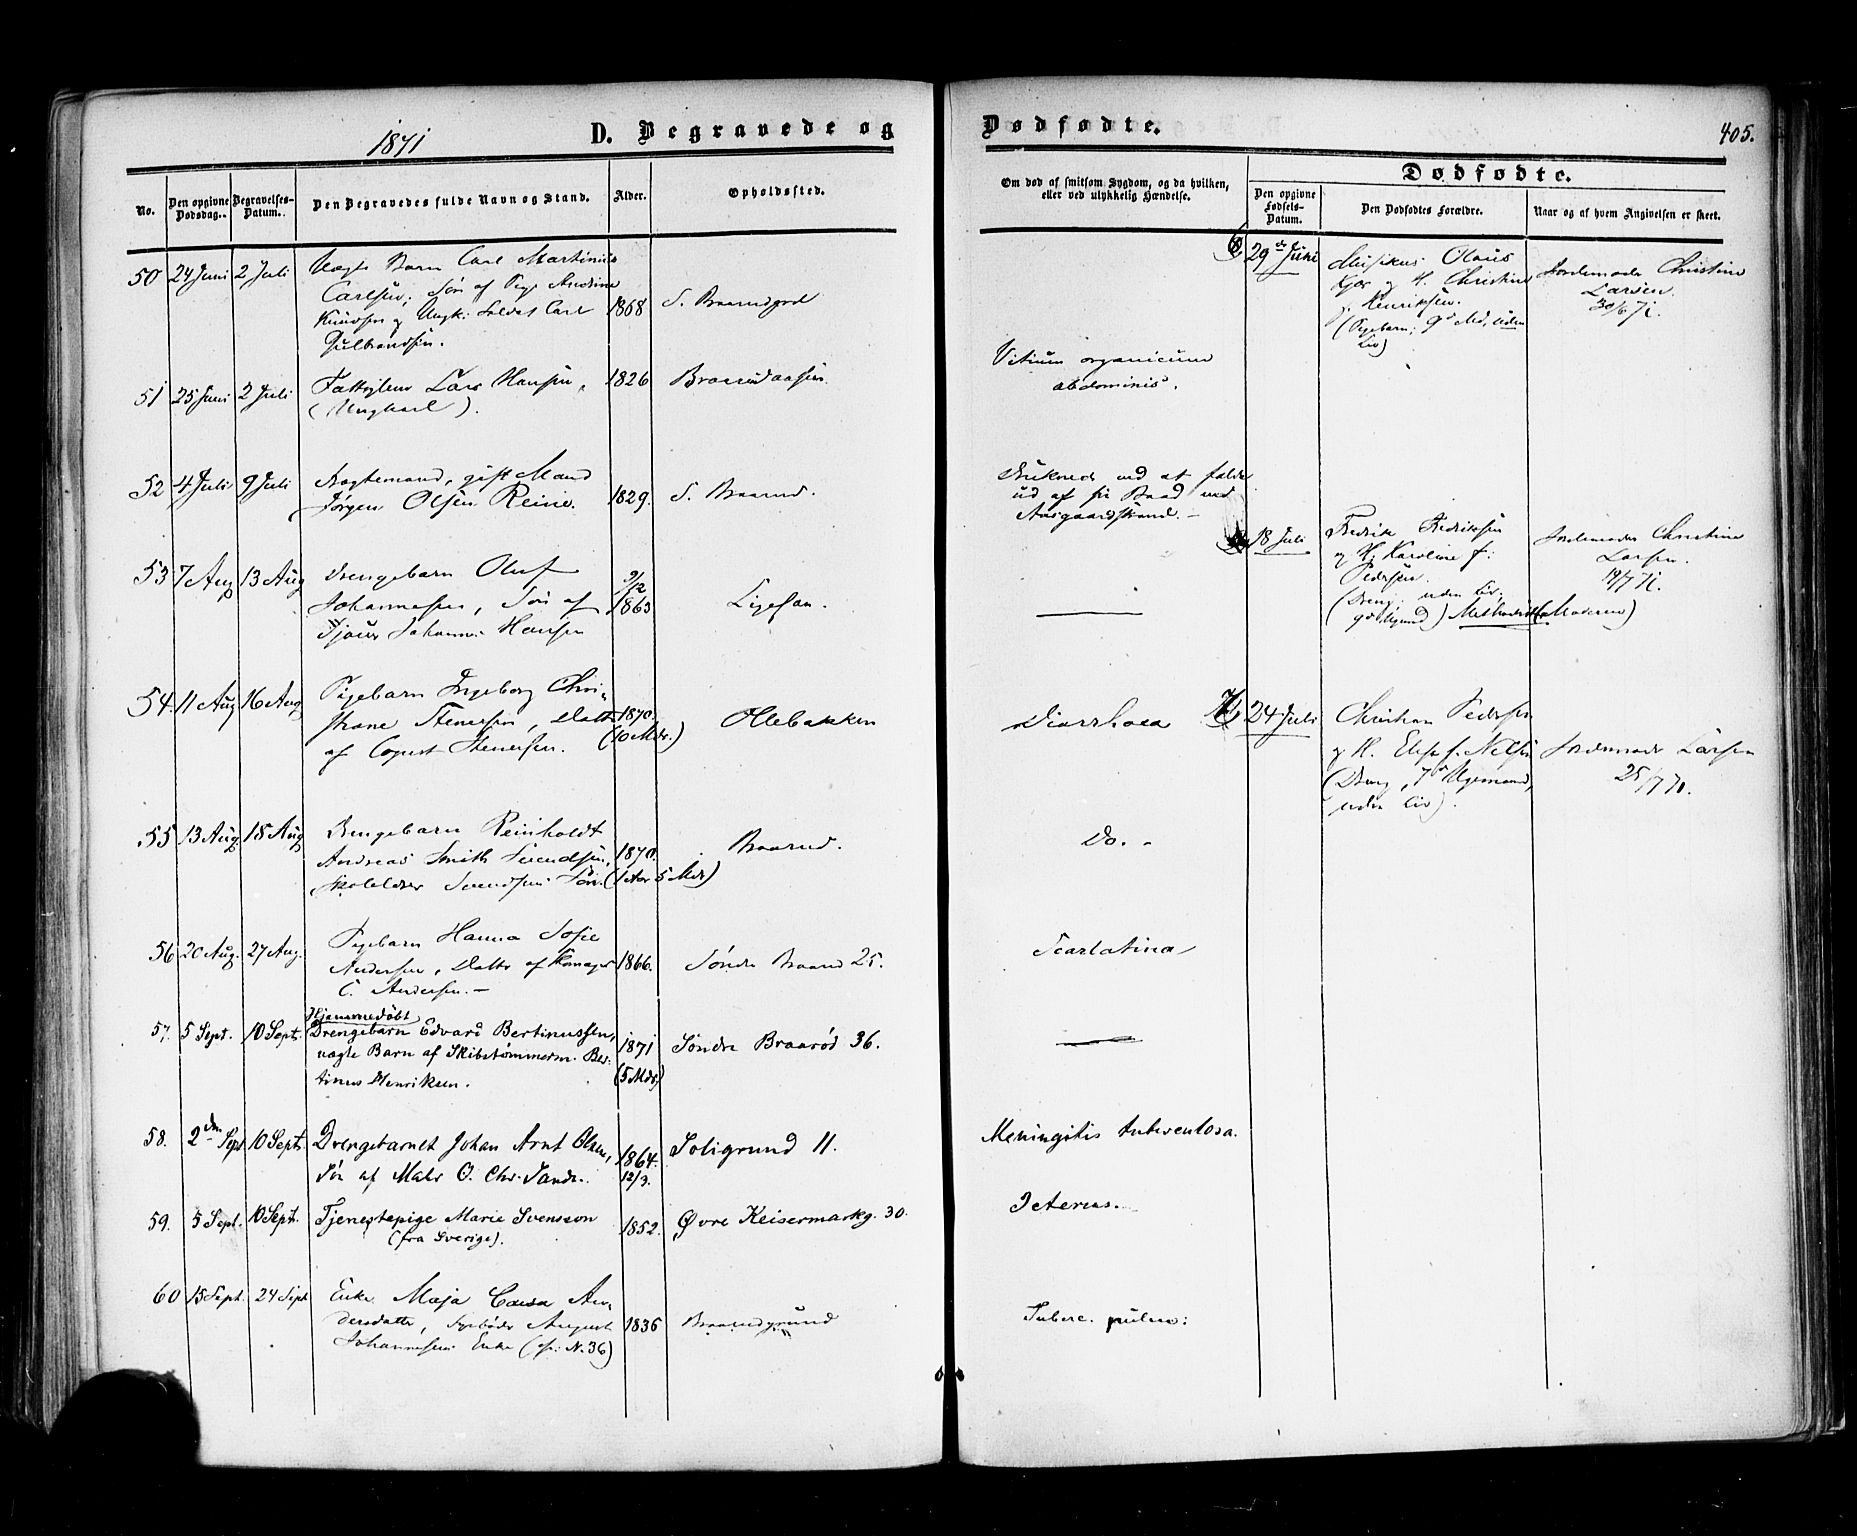 1871
D. Begravede og
Dødfødte.
405.
No.
Den opgivne Dødsdag.
Begravelses-Datum.
Den Begravedes fulde Navn og Stand.
Alder.
Opholdssted.
Om død af smitsom Sygdom, og da hvilken,
eller ved ulykkelig Hændelse.
Dødfødte.
Den opgivne Fødsels-Datum.
Den Dødfødtes Forældre.
Naar og af hvem Angivelsen er skeet.
50 24 Juni 2 Juli Uægte Barn Carl Martinius
Carlsen; Søn af Pige Andrine
Knudsen og Ungk: Soldat Carl 1868
Gulbrandsen.
51 25 Juni 2 Juli Fattiglem Lars Hansen, 1826
(Ungkarl).
Vitium organicum
abdominis.
52 4 Juli 9 Juli gift Mand
Jørgen Olsen Reine. 1829. S. Braarud.
Druknet ved at falde
ud af sin Baad ved
Aasgaardstrand. –
53 7 Aug 13 Aug Drengebarn Oluf
Johannesen, Søn af 1863
Johannes Hansen
54. 11 Aug 16 Aug Pigebarn Ingeborg Chri-
stiane Stenersen, Datter 1870. Ollebakken Diarrhoea
af Stenersen. (10 Mdr.)
55 13 Aug 18 Aug Drengebarn Reinholdt
Andreas Smith Svendsen, 1870. Braarud. Do. -
Svendsens Søn. (1 Aar 5 Mdr)
56 20 Aug. 27 Aug. Pigebarn Hanna Sofie
Andersen, Datter af Skomager 1866. Søndre Braarud 25. Scarlatina
C. Andersen. –
Hjemmedøbt
57. 5 Sept. 10 Sept. Drengebarn Edvard Bertinussen,
uægte Barn af Skibstømmerm. Ber- 1871 Søndre Braarød 36.
tinus Henriksen. (5 Mdr)
58. 2den Sept 10 Sept. Drengebarnet Johan Arnt Olsen, 1864. Soligrund 11. Meningitis tuberculosa.
Søn af Maler O. Chr. Sande. 12/3.
59. 5 Sept. 10 Sept. Tjenestepige Marie Svensson 1852. Øvre Keisermarkg. 30. Icterus.
(fra Sverige).
60 15 Sept. 24 Sept Enke Maja Caisa An-
dersdatter, August 1836 Braarudgrund Tuberc. pulm:
Johannesens Enke (N. 36)
6 29de Juni Musikus Olaus
Kjær og H. Christine
f. Henriksen.
(Pigebarn; 9de Md, uden
Liv)
Jordemoder Christine
Larsen.
30/6 71.
18 Juli Fredrik Fredriksen
og H. Karoline f.
Pedersen.
(Dreng, uden Liv,
Methodist (Moderen)
Jordemoder Christine
Larsen.
19/7 71.
24 Juli Christian Pedersen
og H. Elise f. Nilsen
(Dreng, 7de Ugemaaned,
uden Liv).
Jordemoder Larsen
25/7 71.